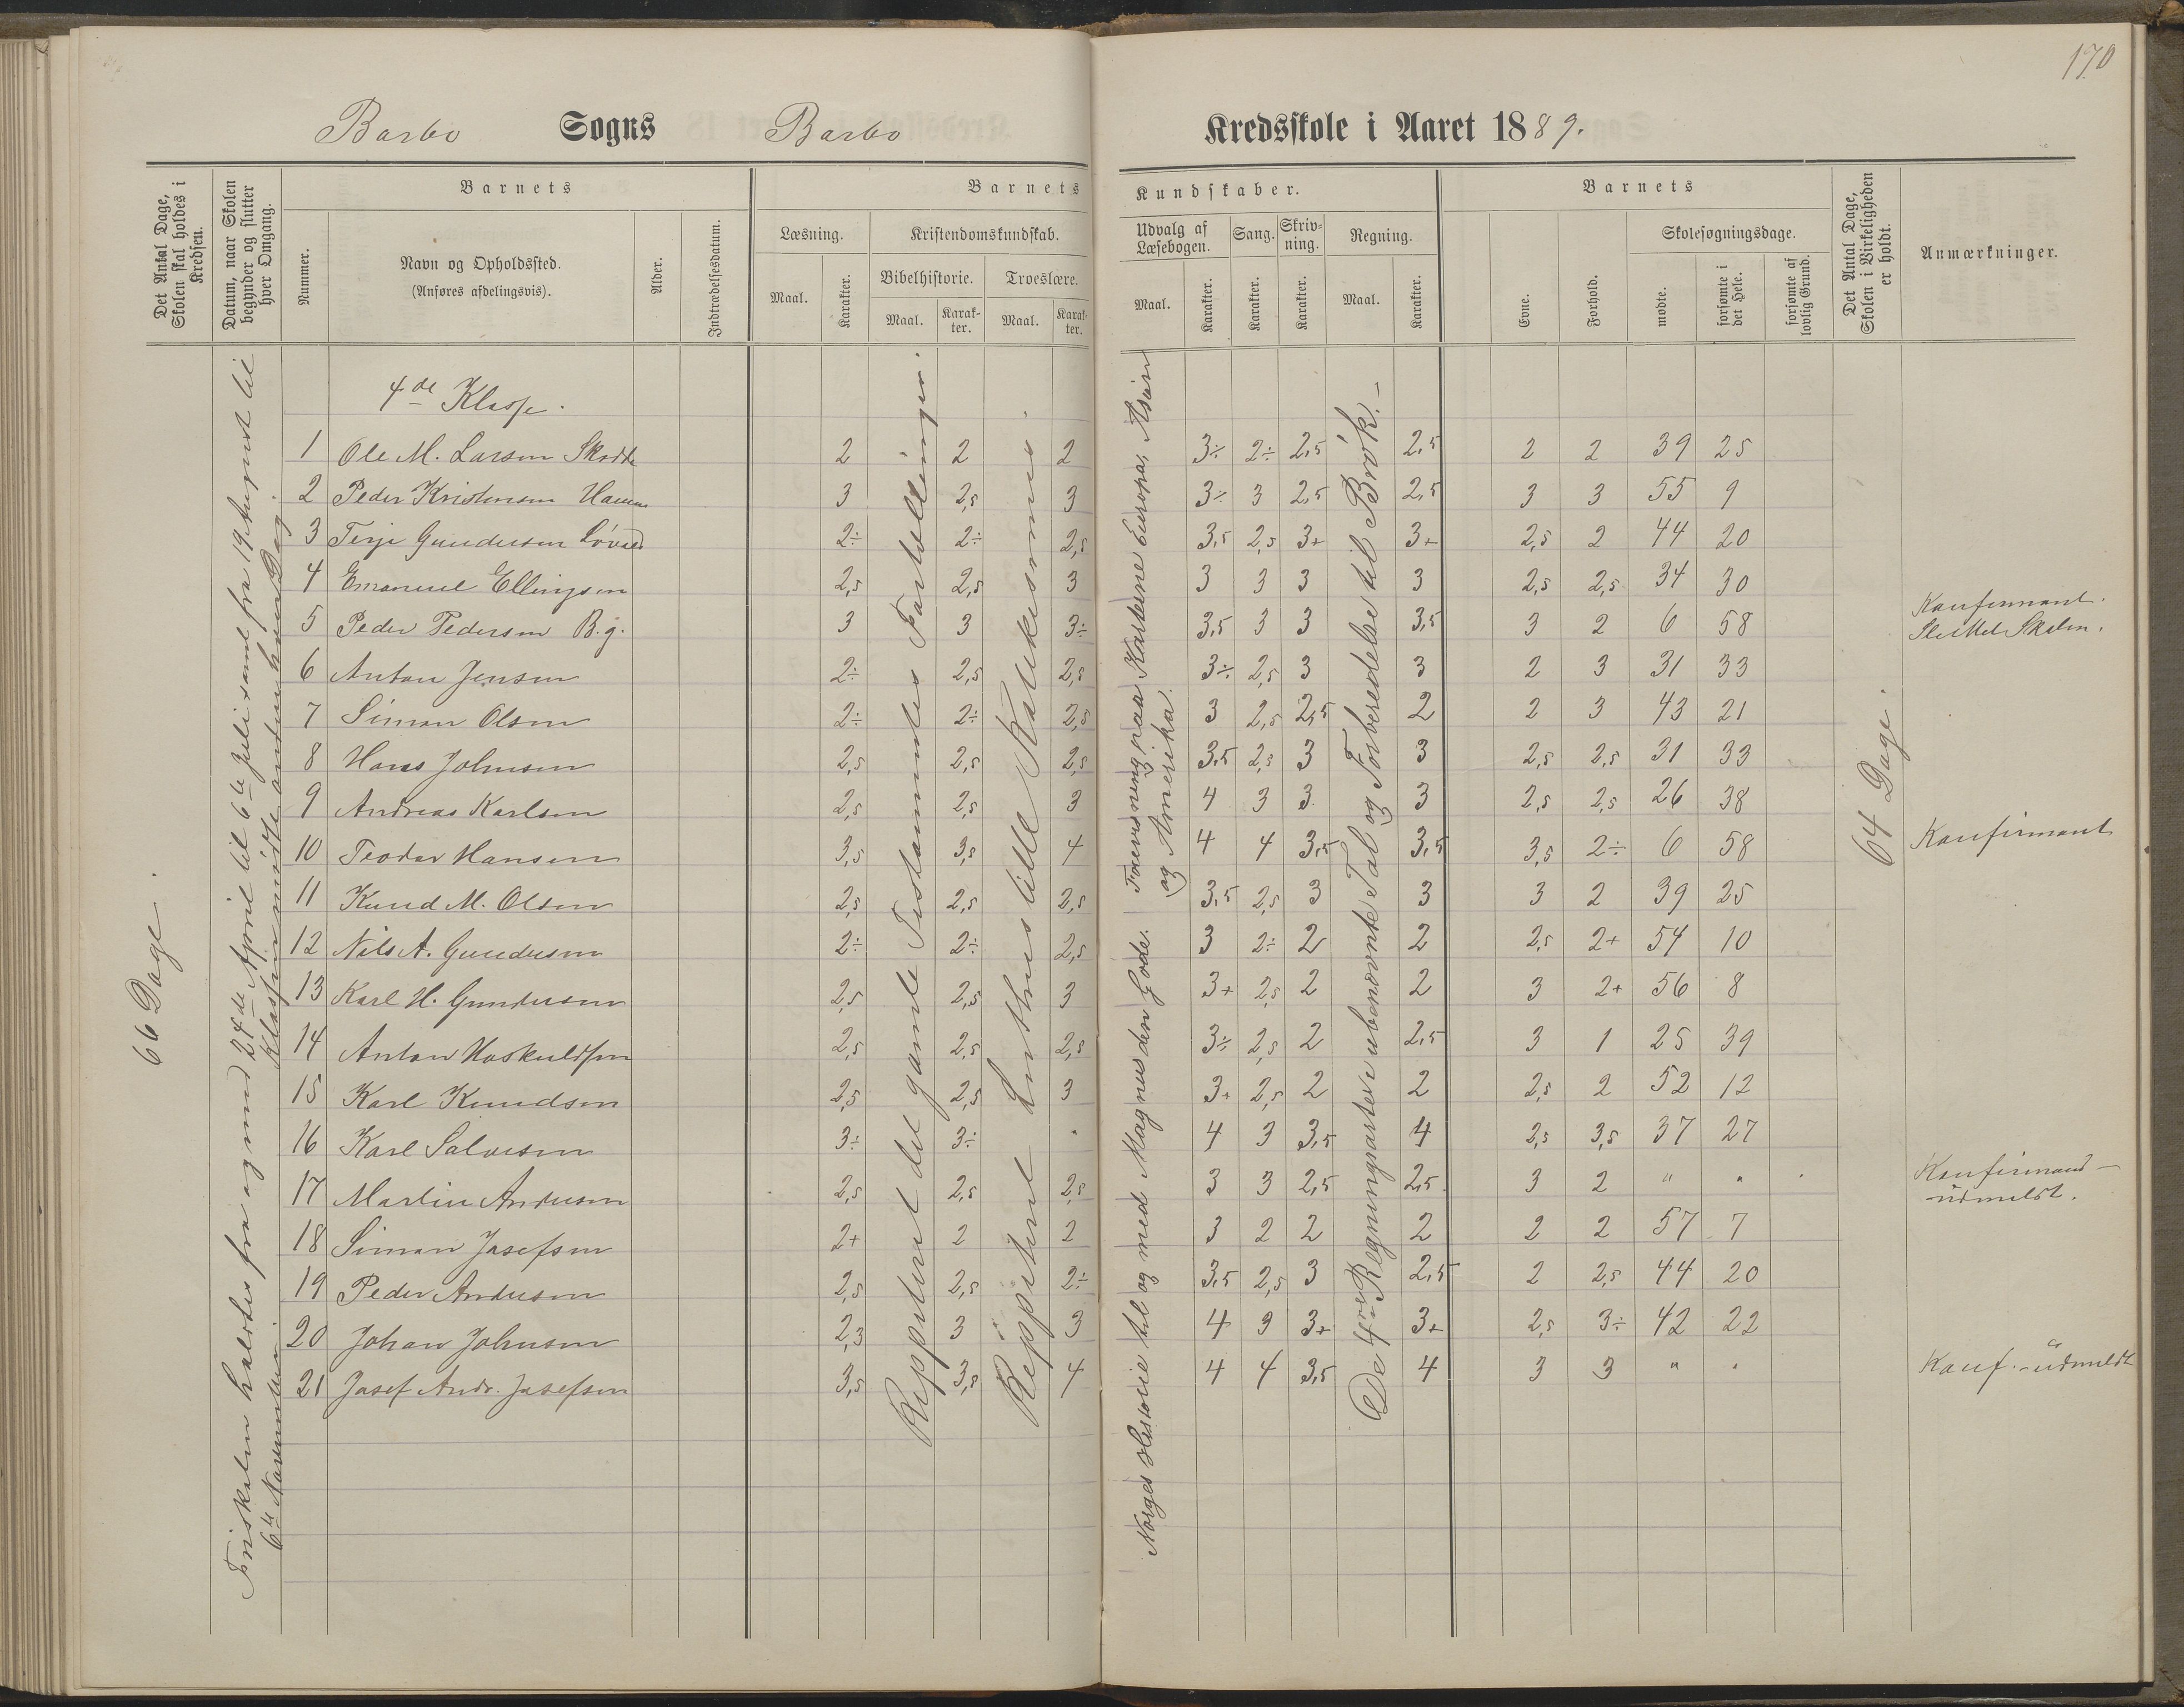 170
Barbo Sogns Barbo Kredsskole i Aaret 1889.
Det Antal Dage, Skolen skal holdes i Kredsen.
Datum, naar Skolen begynder og slutter hver Omgang.
Nummer.
Barnets
Navn og Opholdssted.
(Anføres afdelingsvis).
Alder.
Indtrædelsesdatum.
Barnets Kundskaber.
Læsning.
Maal.
Karakter.
Kristendomskundskab.
Bibelhistorie.
Maal.
Karakter.
Troeslære.
Maal.
Karakter.
Udvalg af Læsebogen.
Maal.
Karakter.
Sang.
Karakter.
Skrivning.
Karakter.
Regning.
Maal.
Karakter.
Barnets
Evne.
Forhold.
Skolesøgningsdage.
mødte.
forsømte i det Hele.
forsømte af lovlig Grund.
Det Antal Dage, Skolen i Virkeligheden er holdt.
Anmærkninger.
66 Dage.
Friskolen holdtes fra og med 24de April til 6te Juli samt fra 19 August til
6te November. Klassen mødte
Reppeteret det gamle Testammentes Fortællinger.
Reppeteret Luthers lille Katekismus.
Norges Historie til og med Magnus den Gode. Forevisning paa Karterne Europa, Asien
og Amerika.
De 4re Regningsarter i ubenævnte Tal og Forberedelse til Brøk. –
64 Dage.
4de Klasse.
1 Ole M. Larsen 2 2 2 3÷ 2÷ 2,5 2,5 2 2 39 25
2 Peder Kristensen 3 2,5 3 3÷ 3 2,5 2,5 3 3 55 9
3 Terje Gundersen 2÷ 2÷ 2,5 3,5 2,5 3+ 3+ 2,5 2 44 20
4 Emanuel Ellingsen 2,5 2,5 3 3 3 3 3 2,5 2,5 34 30
5 Peder Pedersen B.g. 3 3 3÷ 3,5 3 3 3,5 3 2 6 58 Konfirmant. Sluttet Skolen.
6 Anton Jensen 2÷ 2,5 2,5 3÷ 2,5 3 3 2 3 31 33
7 Simon Olsen 2÷ 2÷ 2,5 3 2,5 2,5 2 2 3 43 21
8 Hans Johnsen 2,5 2,5 2,5 3,5 2,5 3 3 2,5 2,5 31 33
9 Andreas Karlsen 2,5 2,5 3 4 3 3 3 2,5 2,5 26 38
10 Teodor Hansen 3,5 3,5 4 4 4 3,5 3,5 3,5 2÷ 6 58 Konfirmant
11 Knud M. Olsen 2,5 2,5 2,5 3,5 2,5 3 3 3 2 39 25
12 Nils A. Gundersen 2÷ 2÷ 2,5 3 2÷ 2 2 2,5 2+ 54 10
13 Karl H. Gundersen 2,5 2,5 3 3+ 2,5 2 2 3 2+ 56 8
14 Anton Hoskuldsen 2,5 2,5 2,5 3÷ 2,5 2 2,5 3 1 25 39
15 Karl Knudsen 2,5 2,5 3 3+ 2,5 2 2 2,5 2 52 12
16 Karl Salvesen 3÷ 3÷ " 4 3 3,5 4 2,5 3,5 37 27
17 Martin Andersen 2,5 2,5 2,5 3 3 2,5 2,5 3 2 " " Konfirmand – udmeldt.
18 Simon Josefsen 2+ 2 2 3 2 2 2 2 2 57 7
19 Peder Andersen 2,5 2,5 2÷ 3,5 2,5 3 2,5 2 2,5 44 20
20 Johan Johnsen 2,3 3 3 4 3 3+ 3+ 2,5 3÷ 42 22
21 Josef Andr. Josefsen 3,5 3,5 4 4 4 3,5 4 3 3 " " Konf. – udmeldt